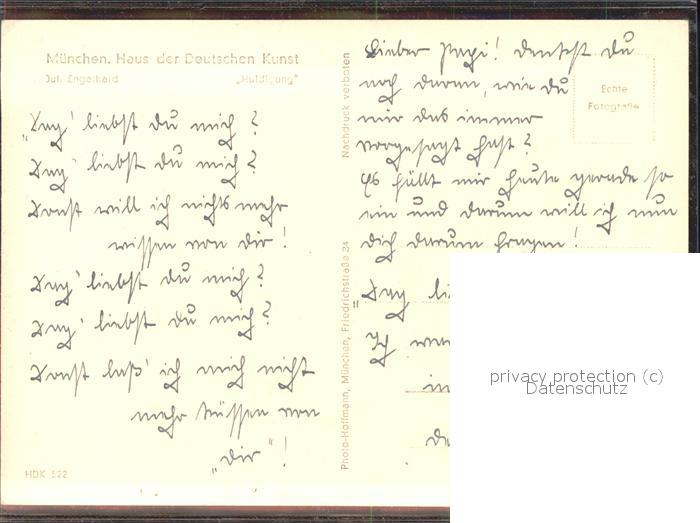 München. Haus der Deutschen Kunst
Jul. Engelhard „Huldigung"
„Sag' liebst du mich?
Sag' liebst du mich?
Sonst will ich nichts mehr
wissen von dir!
Sag' liebst du mich?
Sag' liebst du mich?
Sonst laß' ich mich nicht
mehr küssen von
„dir"!
HDK 522
Nachdruck verboten
Photo-Hoffmann, München, Friedrichstraße 34
Echte
Fotografie
Lieber Papi! Denkst du
noch daran, wie du
mir das immer
vorgesagt hast?
Es fällt mir heute gerade so
ein und darum will ich nun
dich darum fragen!
„Sag
Ich
privacy protection (c)
Datenschutz